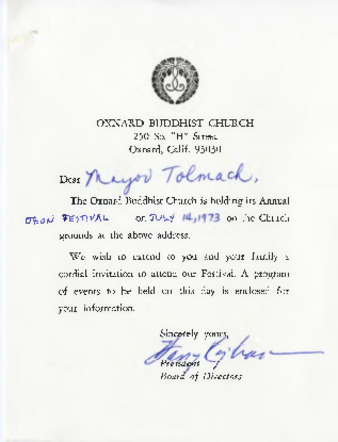 OXNARD BUDDHIST CHURCH
250 So. "H" Street
Oxnard, Calif. 93030
Dear Mayor Tolmach,
The Oxnard Buddhist Church is holding its Annual
OBON FESTIVAL on JULY 14, 1973 on the Church
grounds at the above address.
We wish to extend to you and your family a
cordial invitation to attend our Festival. A program
of events to be held on this day is enclosed for
your information.
Sincerely yours,
President
Board of Directors